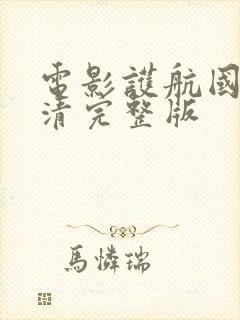 電影護航國
清完整版
馬憐瑞